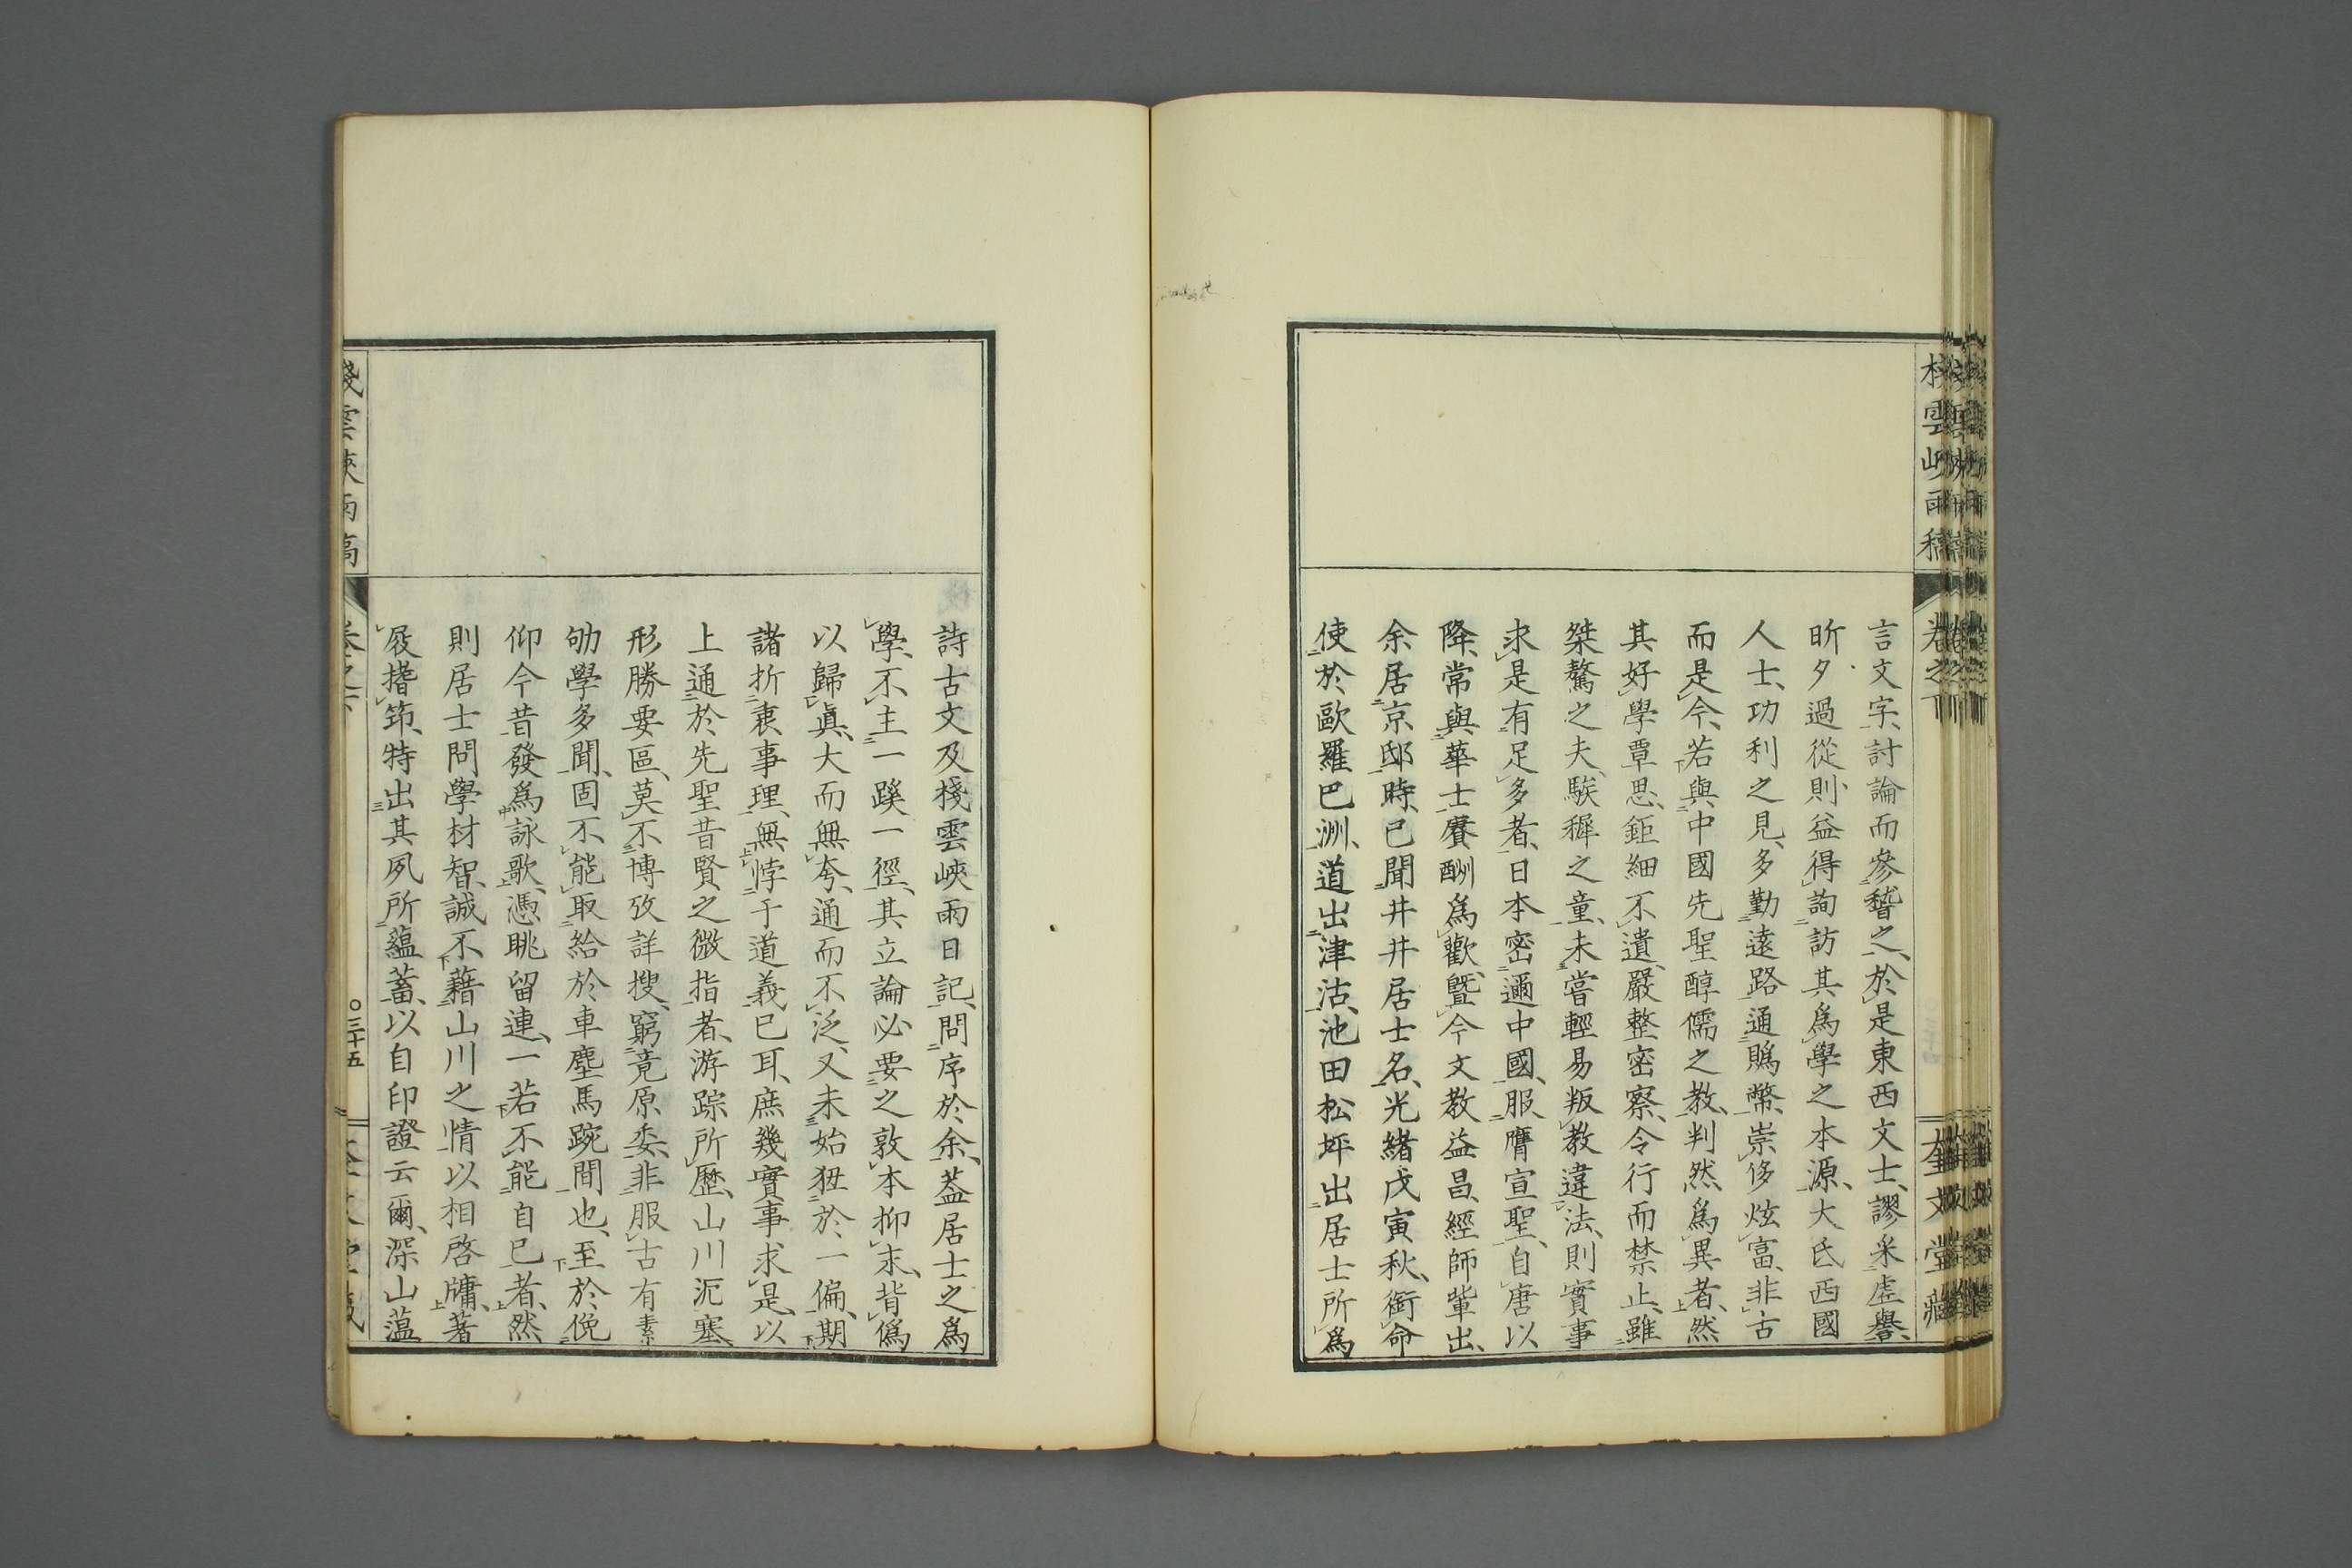 言文字、討論而參稽之、於是東西文士、謬采虛譽、
昕夕過從、則益得詢訪其爲學之本源、大氐西國
人士、功利之見、多勤遠路、通賜幣、崇侈炫富、非古
而是今、若與中國先聖醇儒之教、判然爲異者、然
其好學覃思、鉅細不遺、嚴整密察、令行而禁止、雖
桀驁之夫、騃穉之童、未嘗輕易叛教違法、則實事
求是、有足多者、日本密邇中國、服膺宣聖、自唐以
降、常與華士賡酬爲歡、曁今文教益昌、經師輩出、
余居京邸時、已聞井井居士名、光緒戊寅秋、銜命
使於歐羅巴洲、道出津沽、池田松坪出居士所爲
詩古文及棧雲峽雨日記、問序於余、葢居士之爲
學、不主一蹊一徑、其立論必要之敦本抑末、背僞
以歸眞、大而無夸、通而不泛、又未始狃於一偏、期
諸折衷事理、無悖于道義已耳、庶幾實事求是、以
上通於先聖昔賢之微指者、游踪所歷、山川阨塞、
形勝要區、莫不博攷詳搜、窮竟原委、非服古有素
劬學多聞、固不能取給於車塵馬踠間也、至於俛
仰今昔、發爲詠歌、憑眺留連、一若不能自已者、然
則居士問學材智、誠不藉山川之情以相啓牖、著
屐搘筇、特出其夙所蘊蓄、以自印證云爾、深山薀
棧雲峽雨稿
卷之下
〇三十五
奎文堂藏